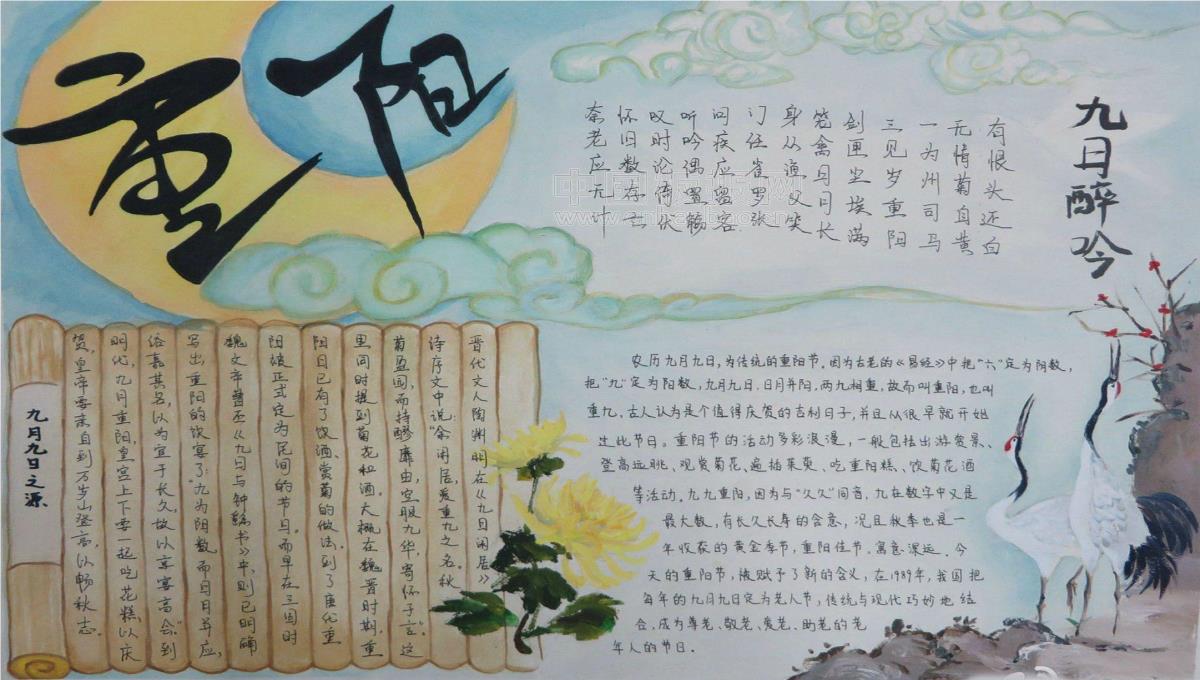 重阳
九日醉吟
有恨头还白
无情菊自黄
一为州司马
三见岁重阳
剑匣尘埃满
笼禽日月长
身从渔父笑
门任雀罗张
问疾应留客
听吟偶置觞
叹时论倚伏
怀旧数存亡
奈老应无计
晋代文人陶渊明在《九日闲居》
诗序文中说:“余闲居,爱重九之名。秋
菊盈园,而持醪靡由,空服九华,寄怀于言”。这
里同时提到菊花和酒。大概在魏晋时期,重
阳日已有了饮酒、赏菊的做法。到了唐代重
阳被正式定为民间的节日。而早在三国时
魏文帝曹丕《九日与钟繇书》中,则已明确
写出重阳的饮宴了:“九为阳数,而日月并应,
俗嘉其名,以为宜于长久,故以享宴高会。”到
明代,九月重阳,皇宫上下要一起吃花糕,以庆
贺,皇帝要亲自到万岁山登高,以畅秋志。
九月九日之源
农历九月九日,为传统的重阳节。因为古老的《易经》中把“六”定为阴数,
把“九”定为阳数,九月九日,日月并阳,两九相重,故而叫重阳,也叫
重九。古人认为是个值得庆贺的吉利日子,并且从很早就开始
过此节日。重阳节的活动多彩浪漫,一般包括出游赏景、
登高远眺、观赏菊花、遍插茱萸、吃重阳糕、饮菊花酒
等活动。九九重阳,因为与“久久”同音,九在数字中又是
最大数,有长久长寿的含意,况且秋季也是一
年收获的黄金季节,重阳佳节,寓意深远。今
天的重阳节,被赋予了新的含义,在1989年,我国把
每年的九月九日定为老人节,传统与现代巧妙地结
合,成为尊老、敬老、爱老、助老的老
年人的节日。